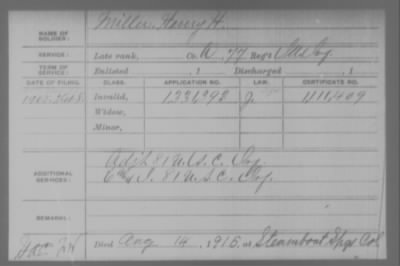 NAME OF SOLDIER: Miller, Henry H.
SERVICE: Late rank, Co. A, 77 Reg't Ills Inf.
TERM OF SERVICE: Enlisted , 1 Discharged , 1
DATE OF FILING. CLASS. APPLICATION NO. LAW. CERTIFICATE NO.
Invalid, 1331,993 J. 1111,409
Widow,
Minor,
ADDITIONAL SERVICES: Adjt. 81 U.S.C. Inf.
81 U.S.C. Inf.
REMARKS:
Died Aug 14, 1915, at Steamboat Spgs Col.